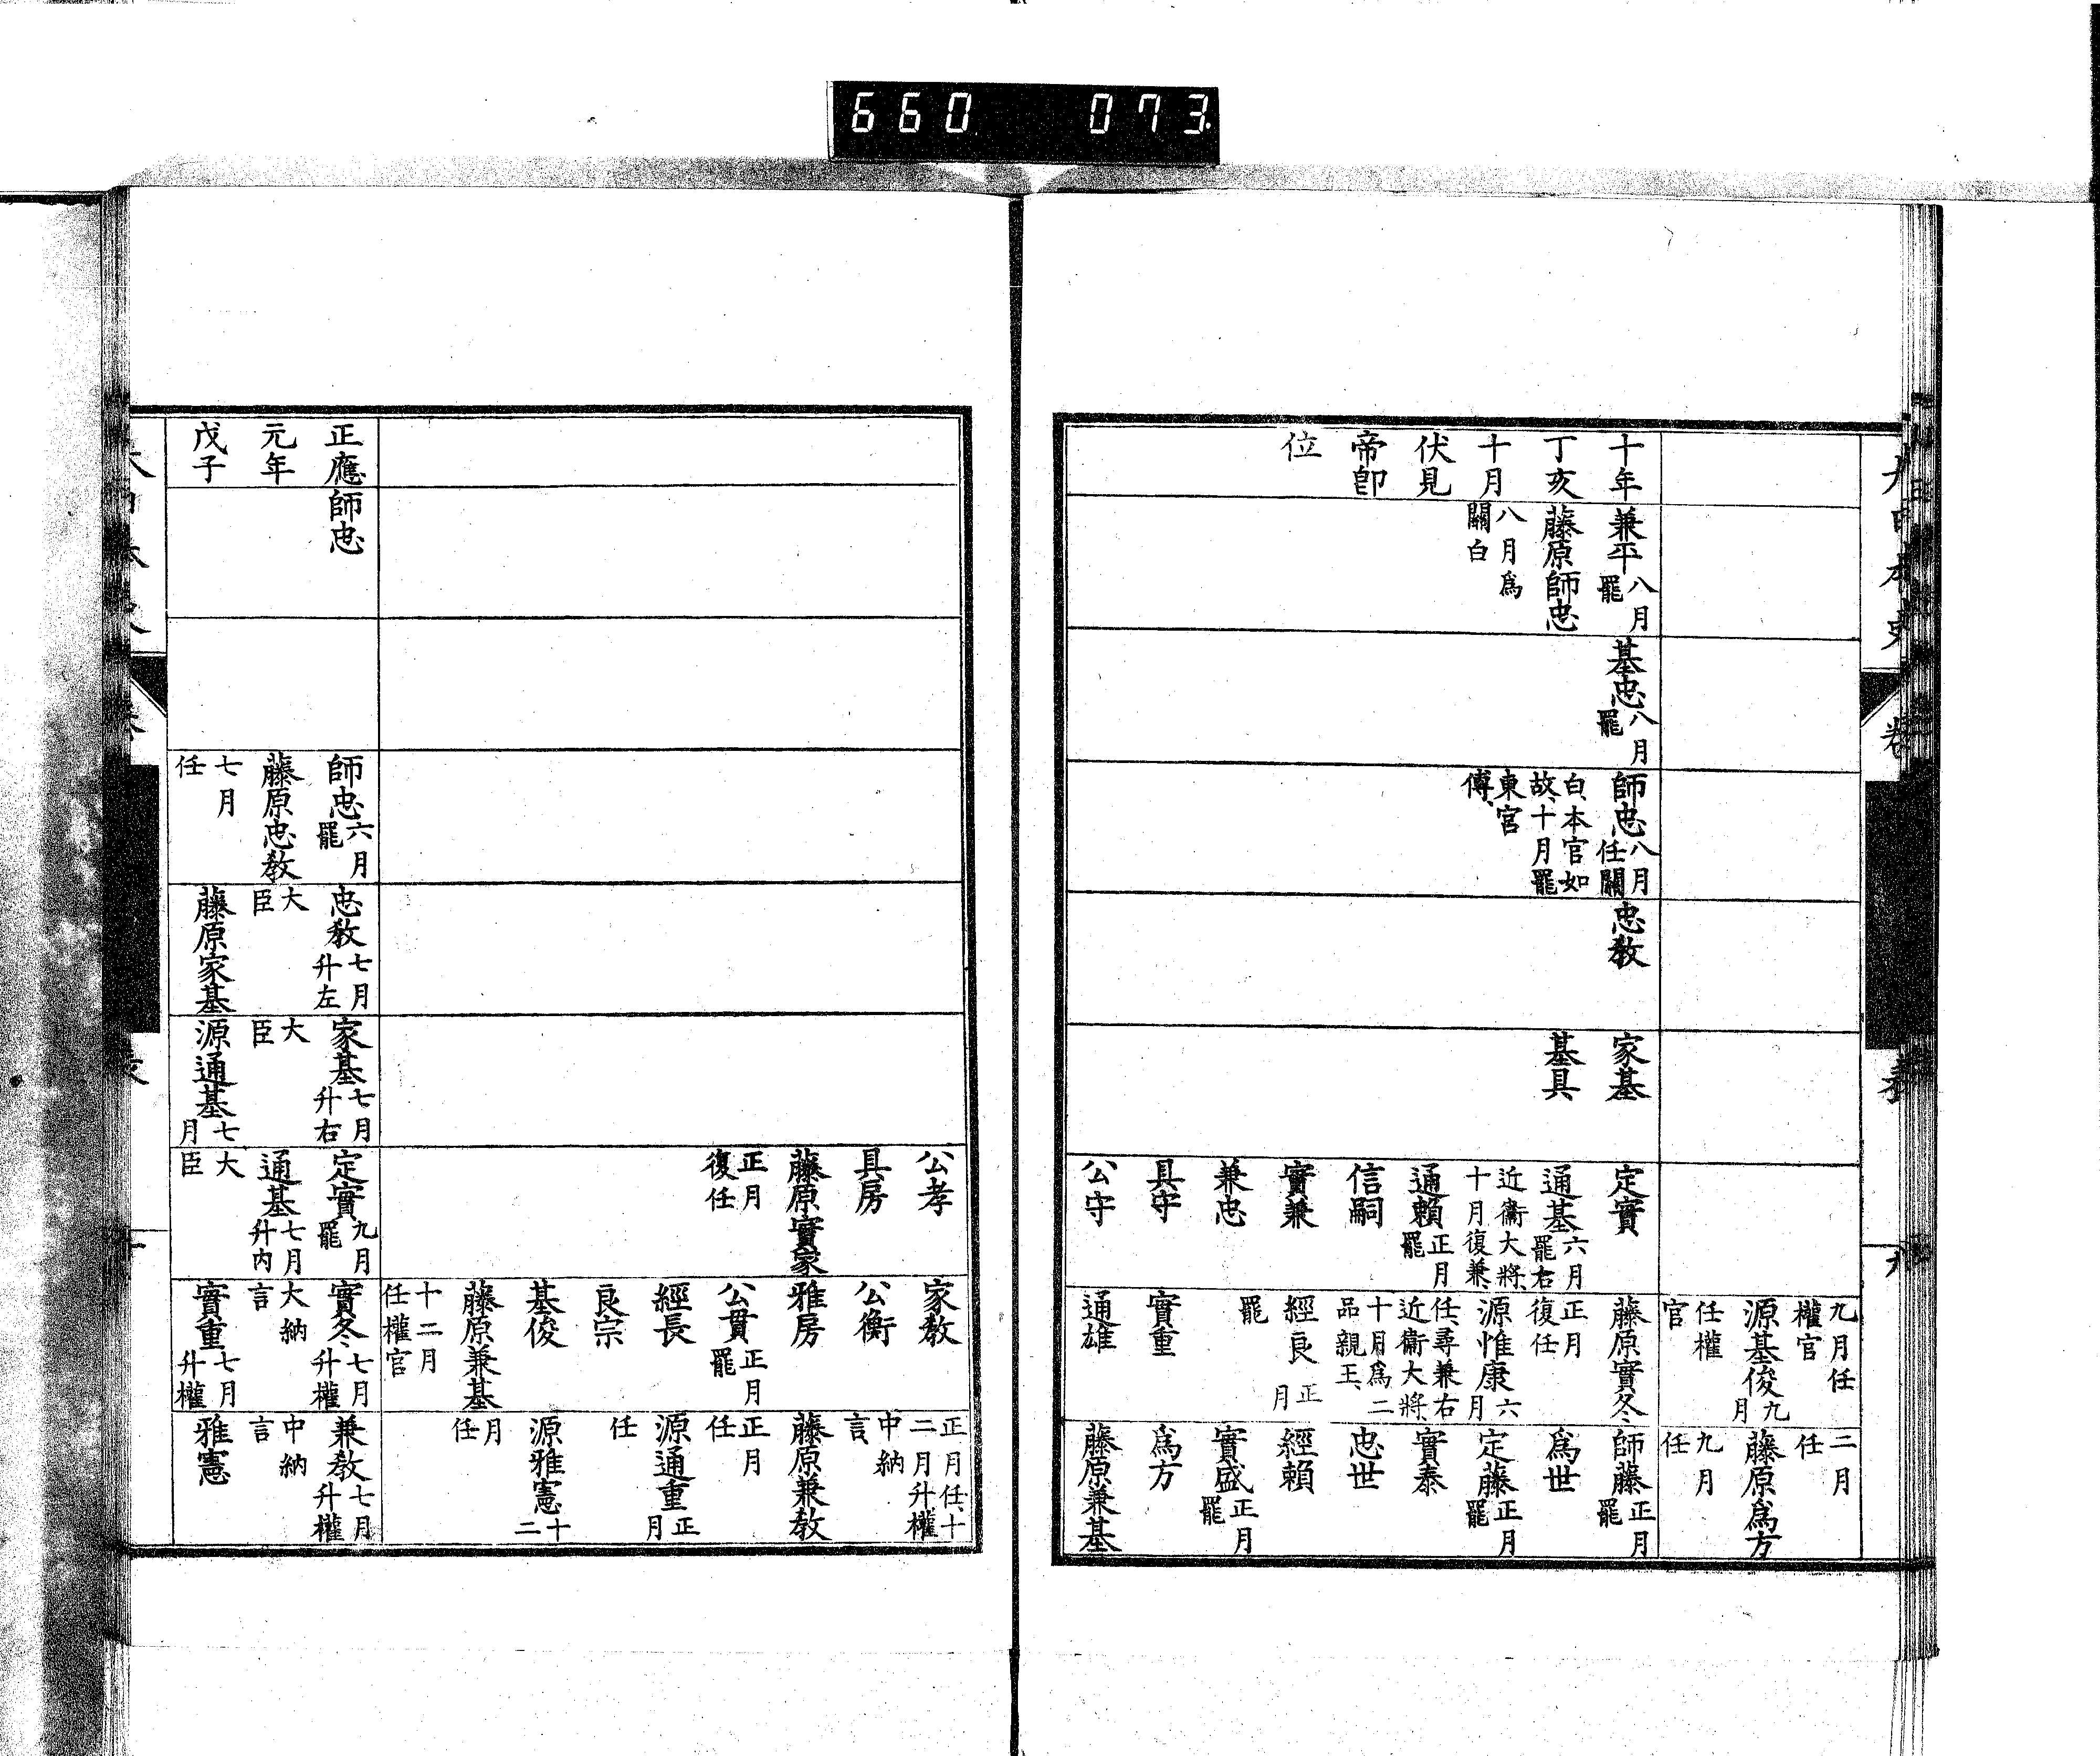 660 073
九月任權官
源基俊九月
任權官
二月任
藤原爲方
九月任
十年
丁亥
十月
伏見
帝卽
位
兼平八月罷
藤原師忠
八月爲關白
基忠八月罷
師忠八月任關
白、本官如故、十月罷
東宮傅、
忠教
家基
基具
定實
通基六月罷右
近衞大將、十月復兼、
通賴正月罷
信嗣
實兼
兼忠
具守
公守
藤原實冬
正月復任
源惟康六月
任、尋兼右近衞大將、
十月爲二品親王、
經良正月
罷
實重
通雄
師藤正月罷
爲世
定藤正月罷
實泰
忠世
經賴
實盛正月罷
爲方
藤原兼基
公孝
具房
藤原實家
正月復任
家教
公衡
雅房
公貫正月罷
經長
良宗
基俊
藤原兼基
十二月任權官
正月任、十二月升權
中納言、
藤原兼教
正月任
源通重正月
任
源雅憲十二
月任
正應
元年
戊子
師忠
師忠六月罷
藤原忠教
七月任
忠教七月升左
大臣
藤原家基
家基七月升右
大臣
源通基七月
定實九月罷
通基七月升内
大臣
實冬七月升權
大納言
實重七月升權
兼教七月升權
中納言
雅憲